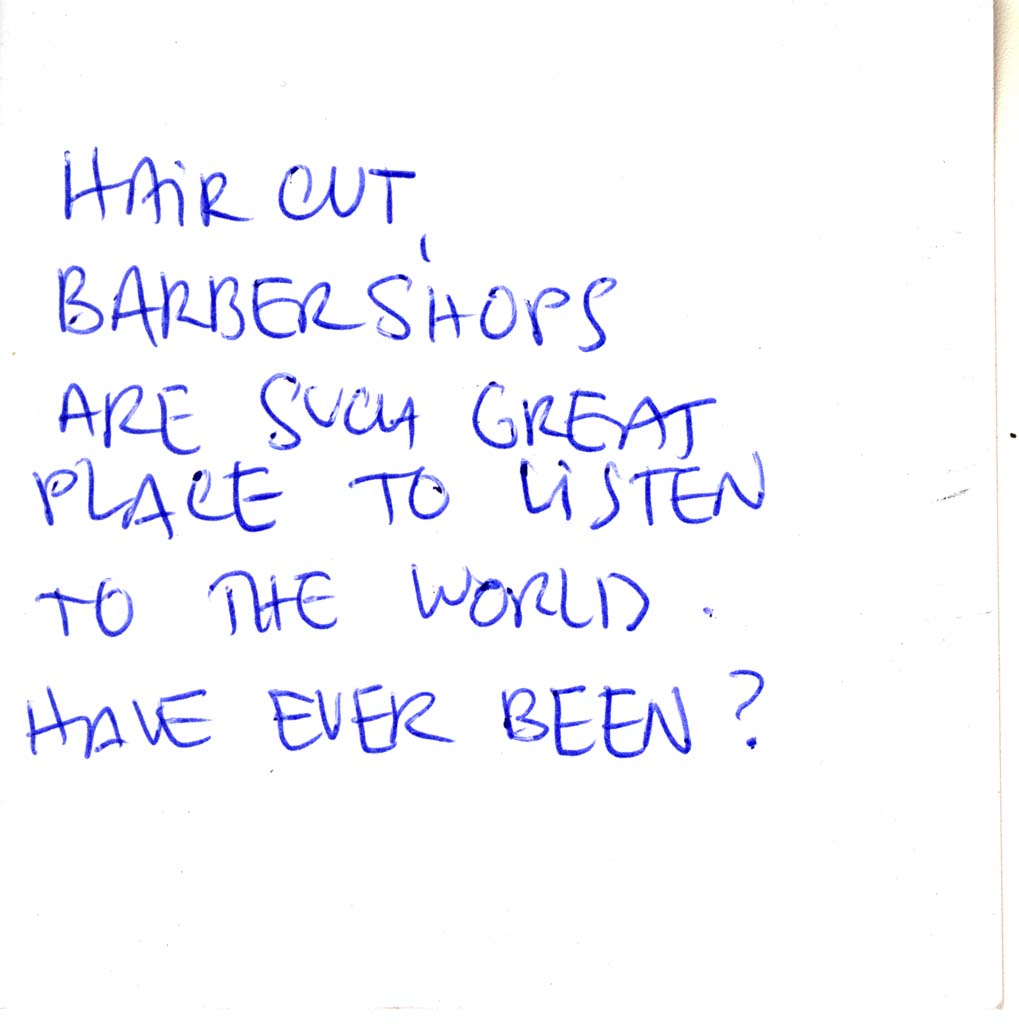 HAIR CUT,
BARBERSHOPS
ARE SUCH GREAT
PLACE TO LISTEN
TO THE WORLD.
HAVE EVER BEEN?